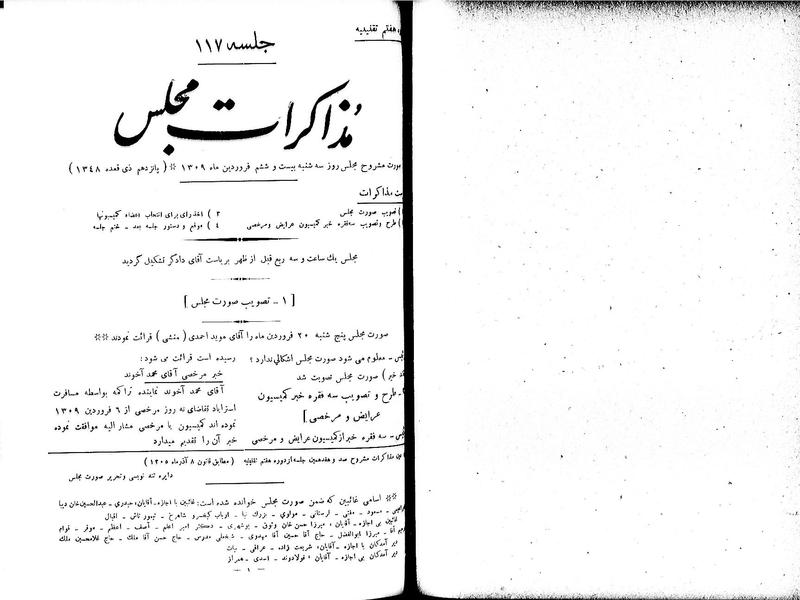 هفتم تقنینیه
جلسه ۱۱۷
مذاکرات مجلس
صورت مشروح مجلس روز سه شنبه بیست و ششم فروردین ماه ۱۳۰۹ ※ ( پانزدهم ذی قعده ۱۳۴۸ )
مذاکرات
) تصویب صورت مجلس
) طرح وتصویب سه‌فقره خبر کمیسیون عرایض ومرخصی
۳ ) اخذ رای برای انتخاب اعضاء کمیسیونها
۴ ) موقع و دستور جلسه بعد - ختم جلسه
مجلس یك ساعت و سه ربع قبل از ظهر بریاست آقای دادگر تشکیل گردید
[ ۱ - تصویب صورت مجلس ]
صورت مجلس پنج شنبه ۲۰ فروردین ماه را آقای موید احمدی ( منشی ) قرائت نمودند ※※
- معلوم می شود صورت مجلس اشکالی ندارد ؟
خیر ) صورت مجلس تصویب شد
- طرح و تصویب سه فقره خبر کمیسیون
عرایض و مرخصی ]
- سه فقره خبر از کمیسیون عرایض و مرخصی
رسیده است قرائت می شود :
خبر مرخصی آقای محمد آخوند
آقای محمد آخوند نماینده تراکمه بواسطه مسافرت
استراباد تقاضای نه روز مرخصی از ۶ فروردین ۱۳۰۹
نموده اند کمیسیون با مرخصی مشار الیه موافقت نموده
خبر آن را تقدیم میدارد
مذاکرات مشروح صد و هفدهمین جلسه از دوره هفتم تقنینیه ( مطابق قانون ۸ آذر ماه ۱۳۰۵ )
دایره تند نویسی وتحریر صورت مجلس
※※ اسامی غائبین که ضمن صورت مجلس خوانده شده است: غائبین با اجازه - آقایان: حیدری - عبدالحسین خان دیبا
مسعود - مفتی - لرستانی - مولوی - بزرگ نیا - ارباب کیخسرو شاهرخ - تیمور تاش - اقبال
غائبین بی اجازه - آقایان : میرزا حسن خان وثوق - بوشهری - دکتر امیر اعلم - آصف - اعظم - موقر - قوام
آقا - میرزا ابوالفضل - حاج آقا حسین آقا مهدوی - شیخعلی مدرس - حاج حسن آقا ملك - حاج غلامحسین ملك
دیر آمدگان با اجازه - آقایان: شریعت زاده - عراقی - بیات
دیر آمدگان بی اجازه - آقایان : فولادوند - اسدی -
- ۱ -